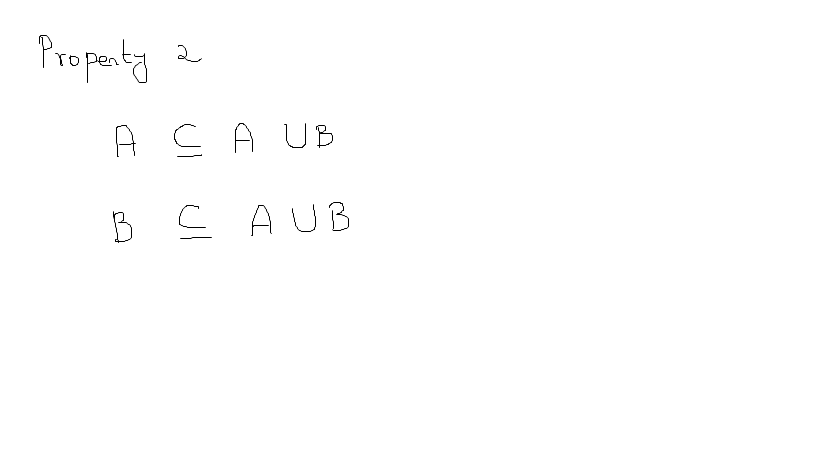 Property 2
A ⊆ A ∪ B
B ⊆ A ∪ B